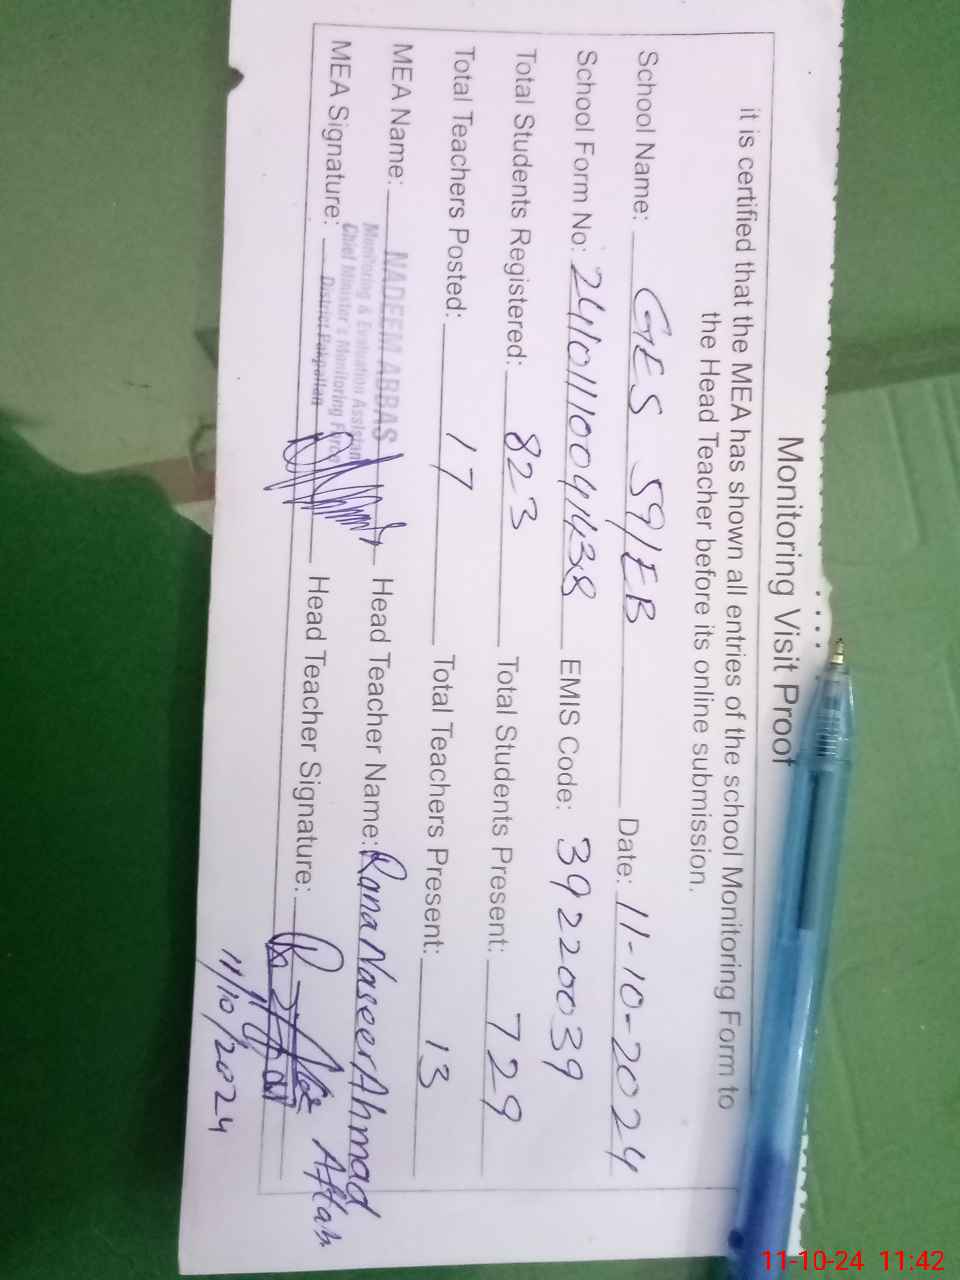 Monitoring Visit Proof
it is certified that the MEA has shown all entries of the school Monitoring Form to
the Head Teacher before its online submission.
School Name: GES 59/EB Date: 11-10-2024
School Form No: 241011004438 EMIS Code: 39220039
Total Students Registered: 823 Total Students Present: 729
Total Teachers Posted: 17 Total Teachers Present: 13
MEA Name: NADEEM ABBAS Head Teacher Name: Rana Naseer Ahmad
Monitoring & Evaluation Assistan
Chief Minister's Monitoring Force
District Pakpattan
MEA Signature: Head Teacher Signature: Aftab
11/10/2024
11-10-24 11:42